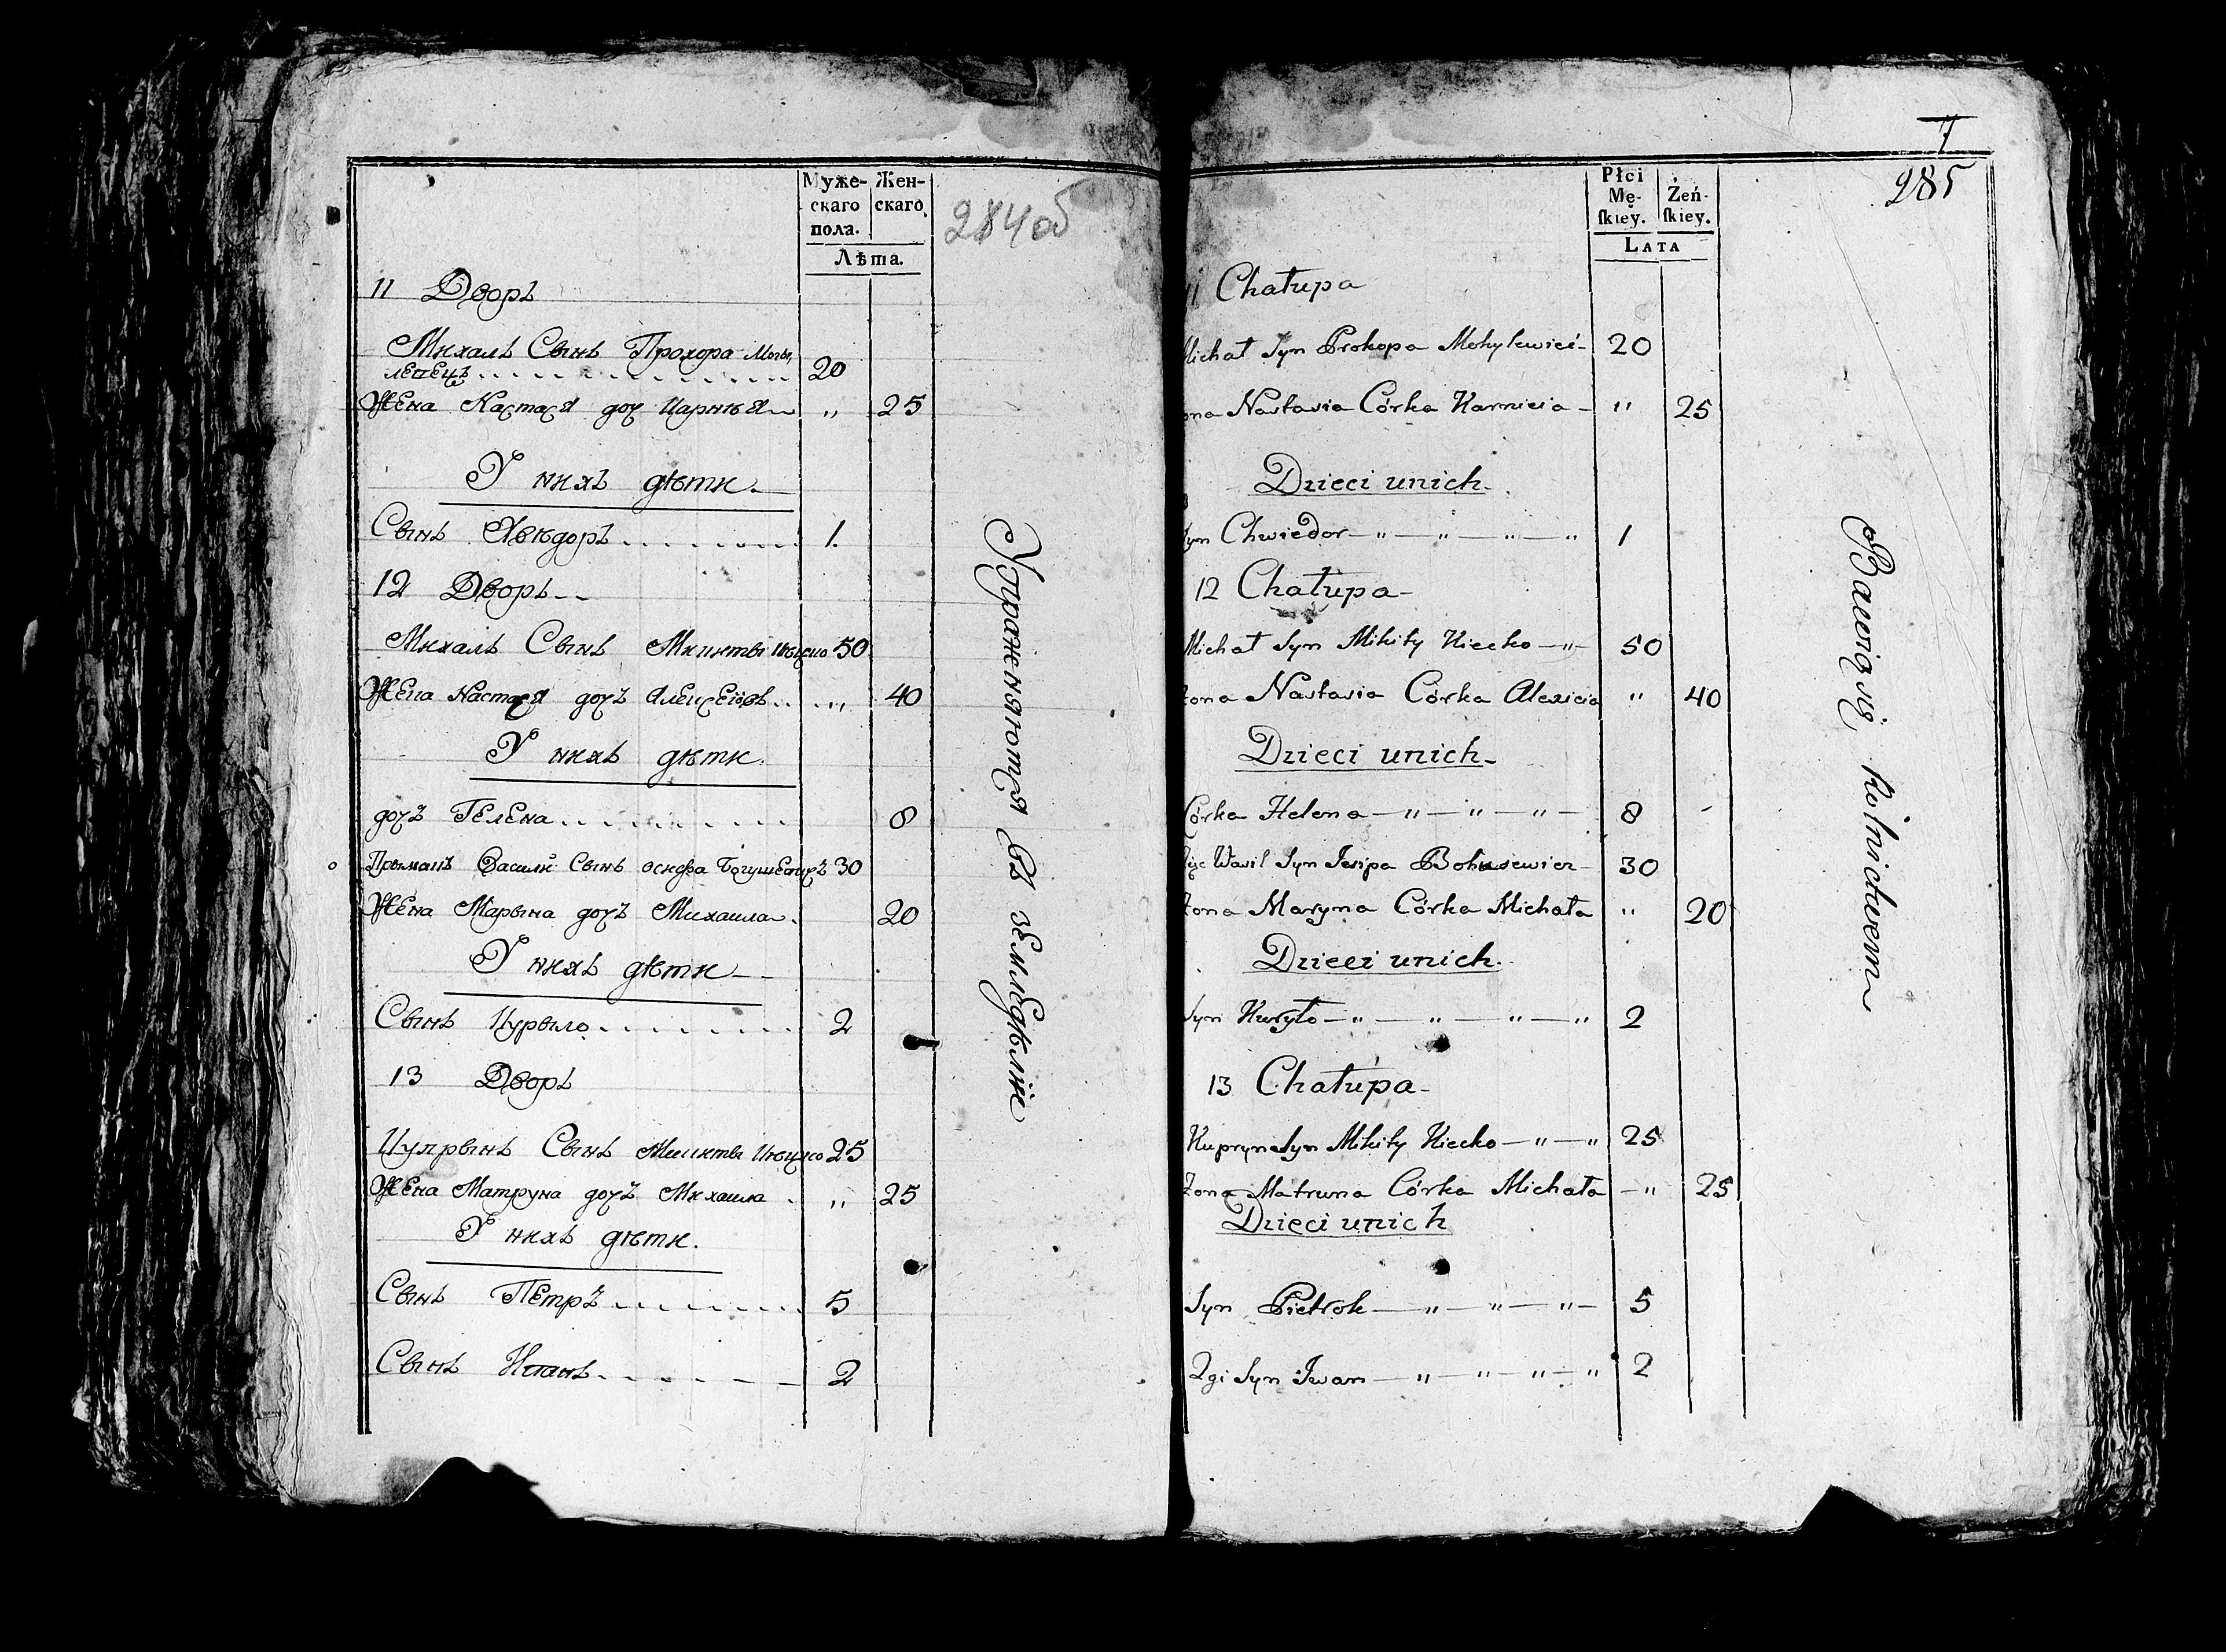 Муже-
скаго
пола.
Жен-
скаго.
Лѣта.
284 об
11 Дворъ
Михалъ Сынъ Прохора Могы,
левецъ 20
Жена Настася доч Карнѣя „ 25
У нихъ дѣти
Сынъ Хвѣдоръ 1.
12 Дворъ
Михалъ Сынъ Микиты Кѣцко 50
Жена Настася дочъ Алексѣювъ „ 40
У нихъ дѣти.
дочъ Гелена 8
Прыманъ Василй Сынъ осифа Богушевичъ 30
Жена Марына дочъ Михаила 20
У нихъ дѣти
Сынъ Курыло 2
13 Дворъ
Купрынъ Сынъ Микиты Кѣцко 25
Жена Матруна дочъ Михаила „ 25
У нихъ дѣти.
Сынъ Петръ 5
Сынъ Иванъ 2
Упражняются въ земледѣлiи
7
285
Płci
Mę-
ſkiey.
Żeń-
ſkiey.
LATA
11 Chałupa
Michał Syn Prokopa Mohylewieć 20
Żona Nastasia Córka Karnieia „ 25
Dzieci unich
Syn Chwiedor 1
12 Chałupa
Michał Syn Mikity Kiecko 50
Żona Nastasia Córka Alexieia „ 40
Dzieci unich
Córka Helena 8
Wasil Syn Jesipa Bohusewicz 30
Żona Maryna Córka Michała „ 20
Dzieci unich.
Syn Kuryło 2
13 Chałupa
Kupryn Syn Mikity Kiecko 25
Żona Matruna Córka Michała „ 25
Dzieci unich
Syn Pietrok 5
2gi Syn Iwan 2
Bawią się Rolnictwem